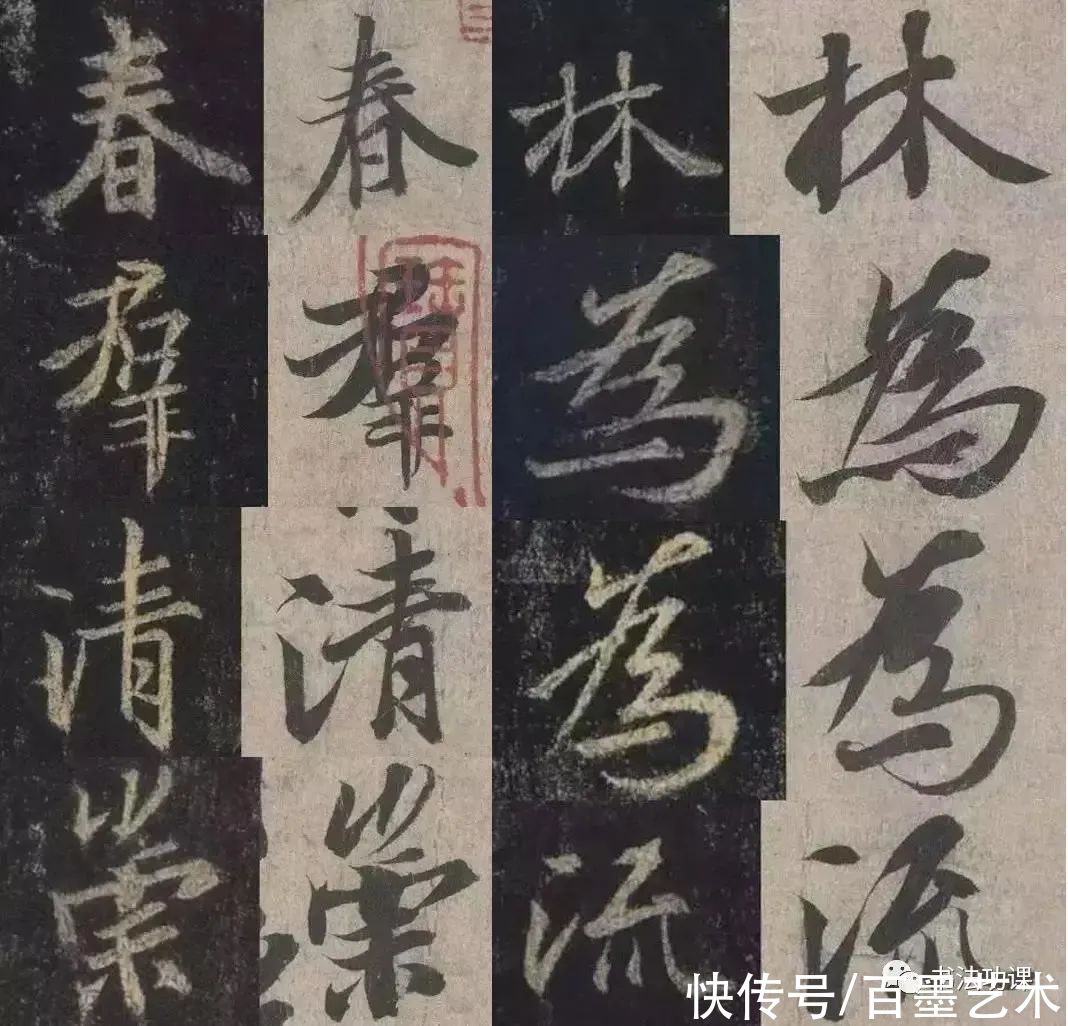 春 春 林 林
羣 羣 為 為
清 清 為 為
崇 崇 流 流
书法功课
快传号/百墨艺术